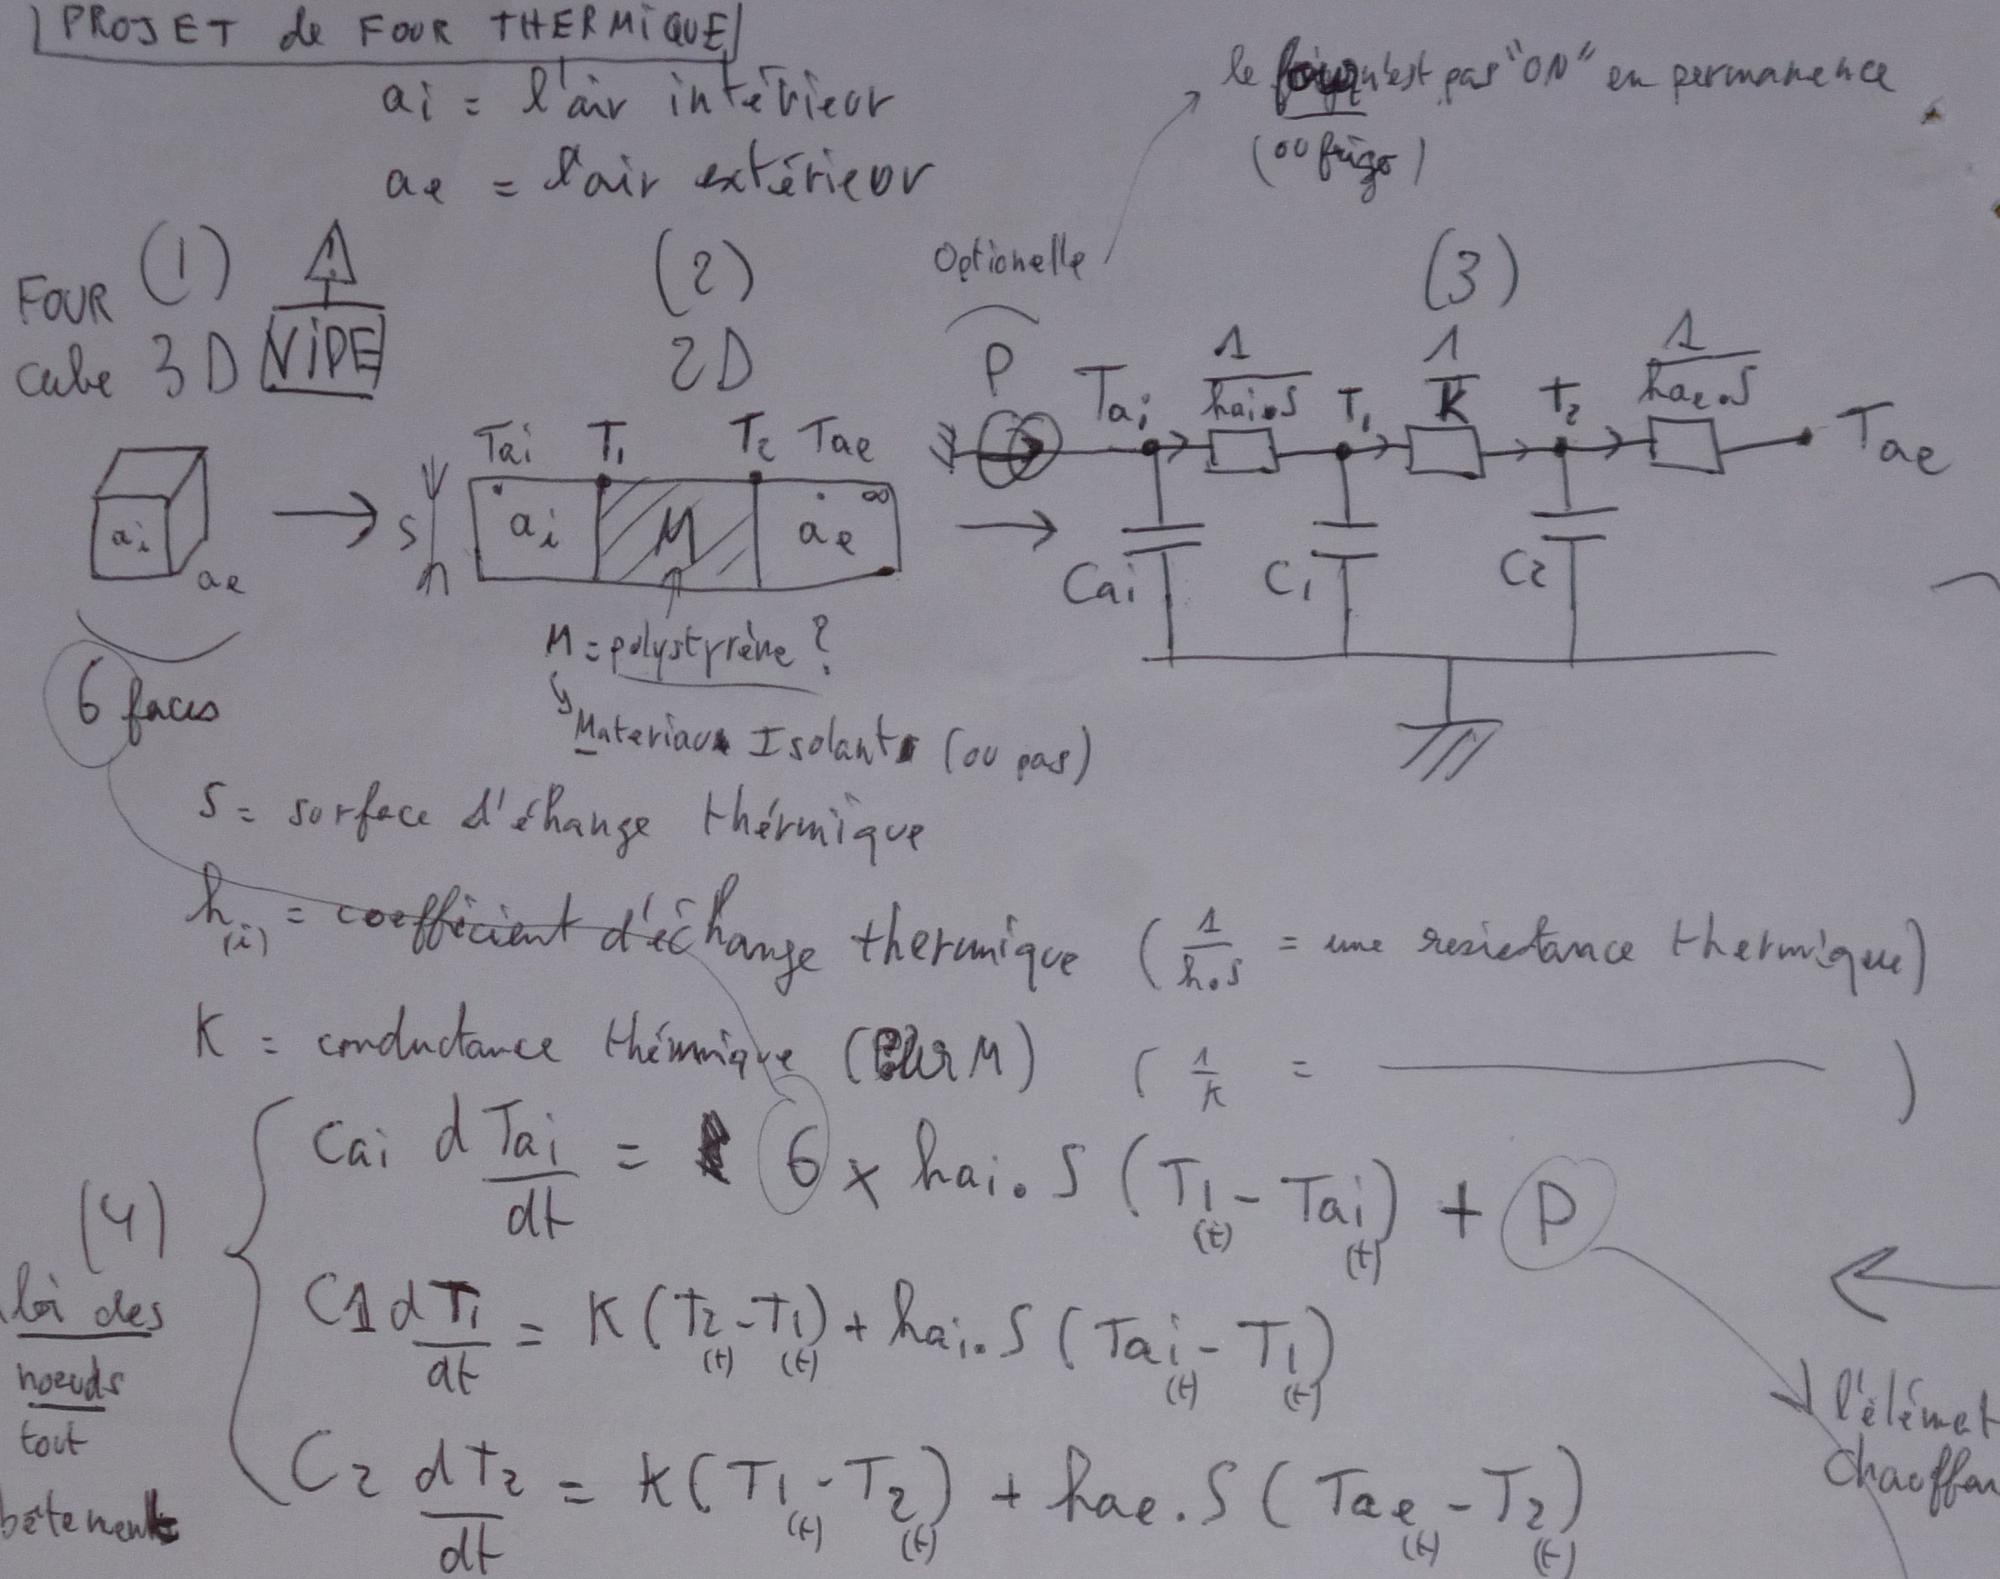 PROJET de FOUR THERMIQUE
ai = l'air intérieur
ae = l'air extérieur
le four n'est pas "ON" en permanence
(ou frigo)
FOUR
cube
(1)
3D
VIDE
(2)
2D
Optionelle
(3)
P
Tai
1/hai.S
T1
1/K
T2
1/hae.S
Tae
Cai
C1
C2
ai
ae
S
Tai T1 T2 Tae
ai M ae ∞
M = polystyrène ?
Materiaux Isolants (ou pas)
6 faces
S = surface d'échange thérmique
h(i) = coefficient d'échange thermique (1/h.S = une resistance thermique)
K = conductance thérmique (pour M) (1/K = ———)
(4)
loi des
noeuds
tout
bêtement
Cai dTai/dt = 6 x hai.S (T1(t) - Tai(t)) + P
C1 dT1/dt = K (T2(t) - T1(t)) + hai.S (Tai(t) - T1(t))
C2 dT2/dt = K (T1(t) - T2(t)) + hae.S (Tae(t) - T2(t))
l'élémet
chauffan